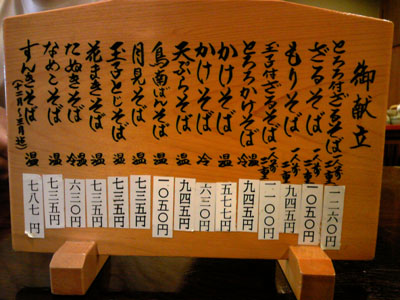 御献立
とろろ付ざるそば 一人前二重 一二六〇円
ざるそば 一人前二重 一〇五〇円
もりそば 一人前二重 九四五円
玉子付ざるそば 一人前二重 一一〇〇円
とろろかけそば 冷温 九四五円
かけそば 温 五七七円
かけそば 冷 六三〇円
天ぷらそば 温 九四五円
鳥南ばんそば 温 一〇五〇円
月見そば 温 七三五円
玉子とじそば 温 七三五円
花まきそば 温 七三五円
たぬきそば 冷温 六三〇円
なめこそば 温 七三五円
すんきそば(十二月〜三月迄) 温 七八七円